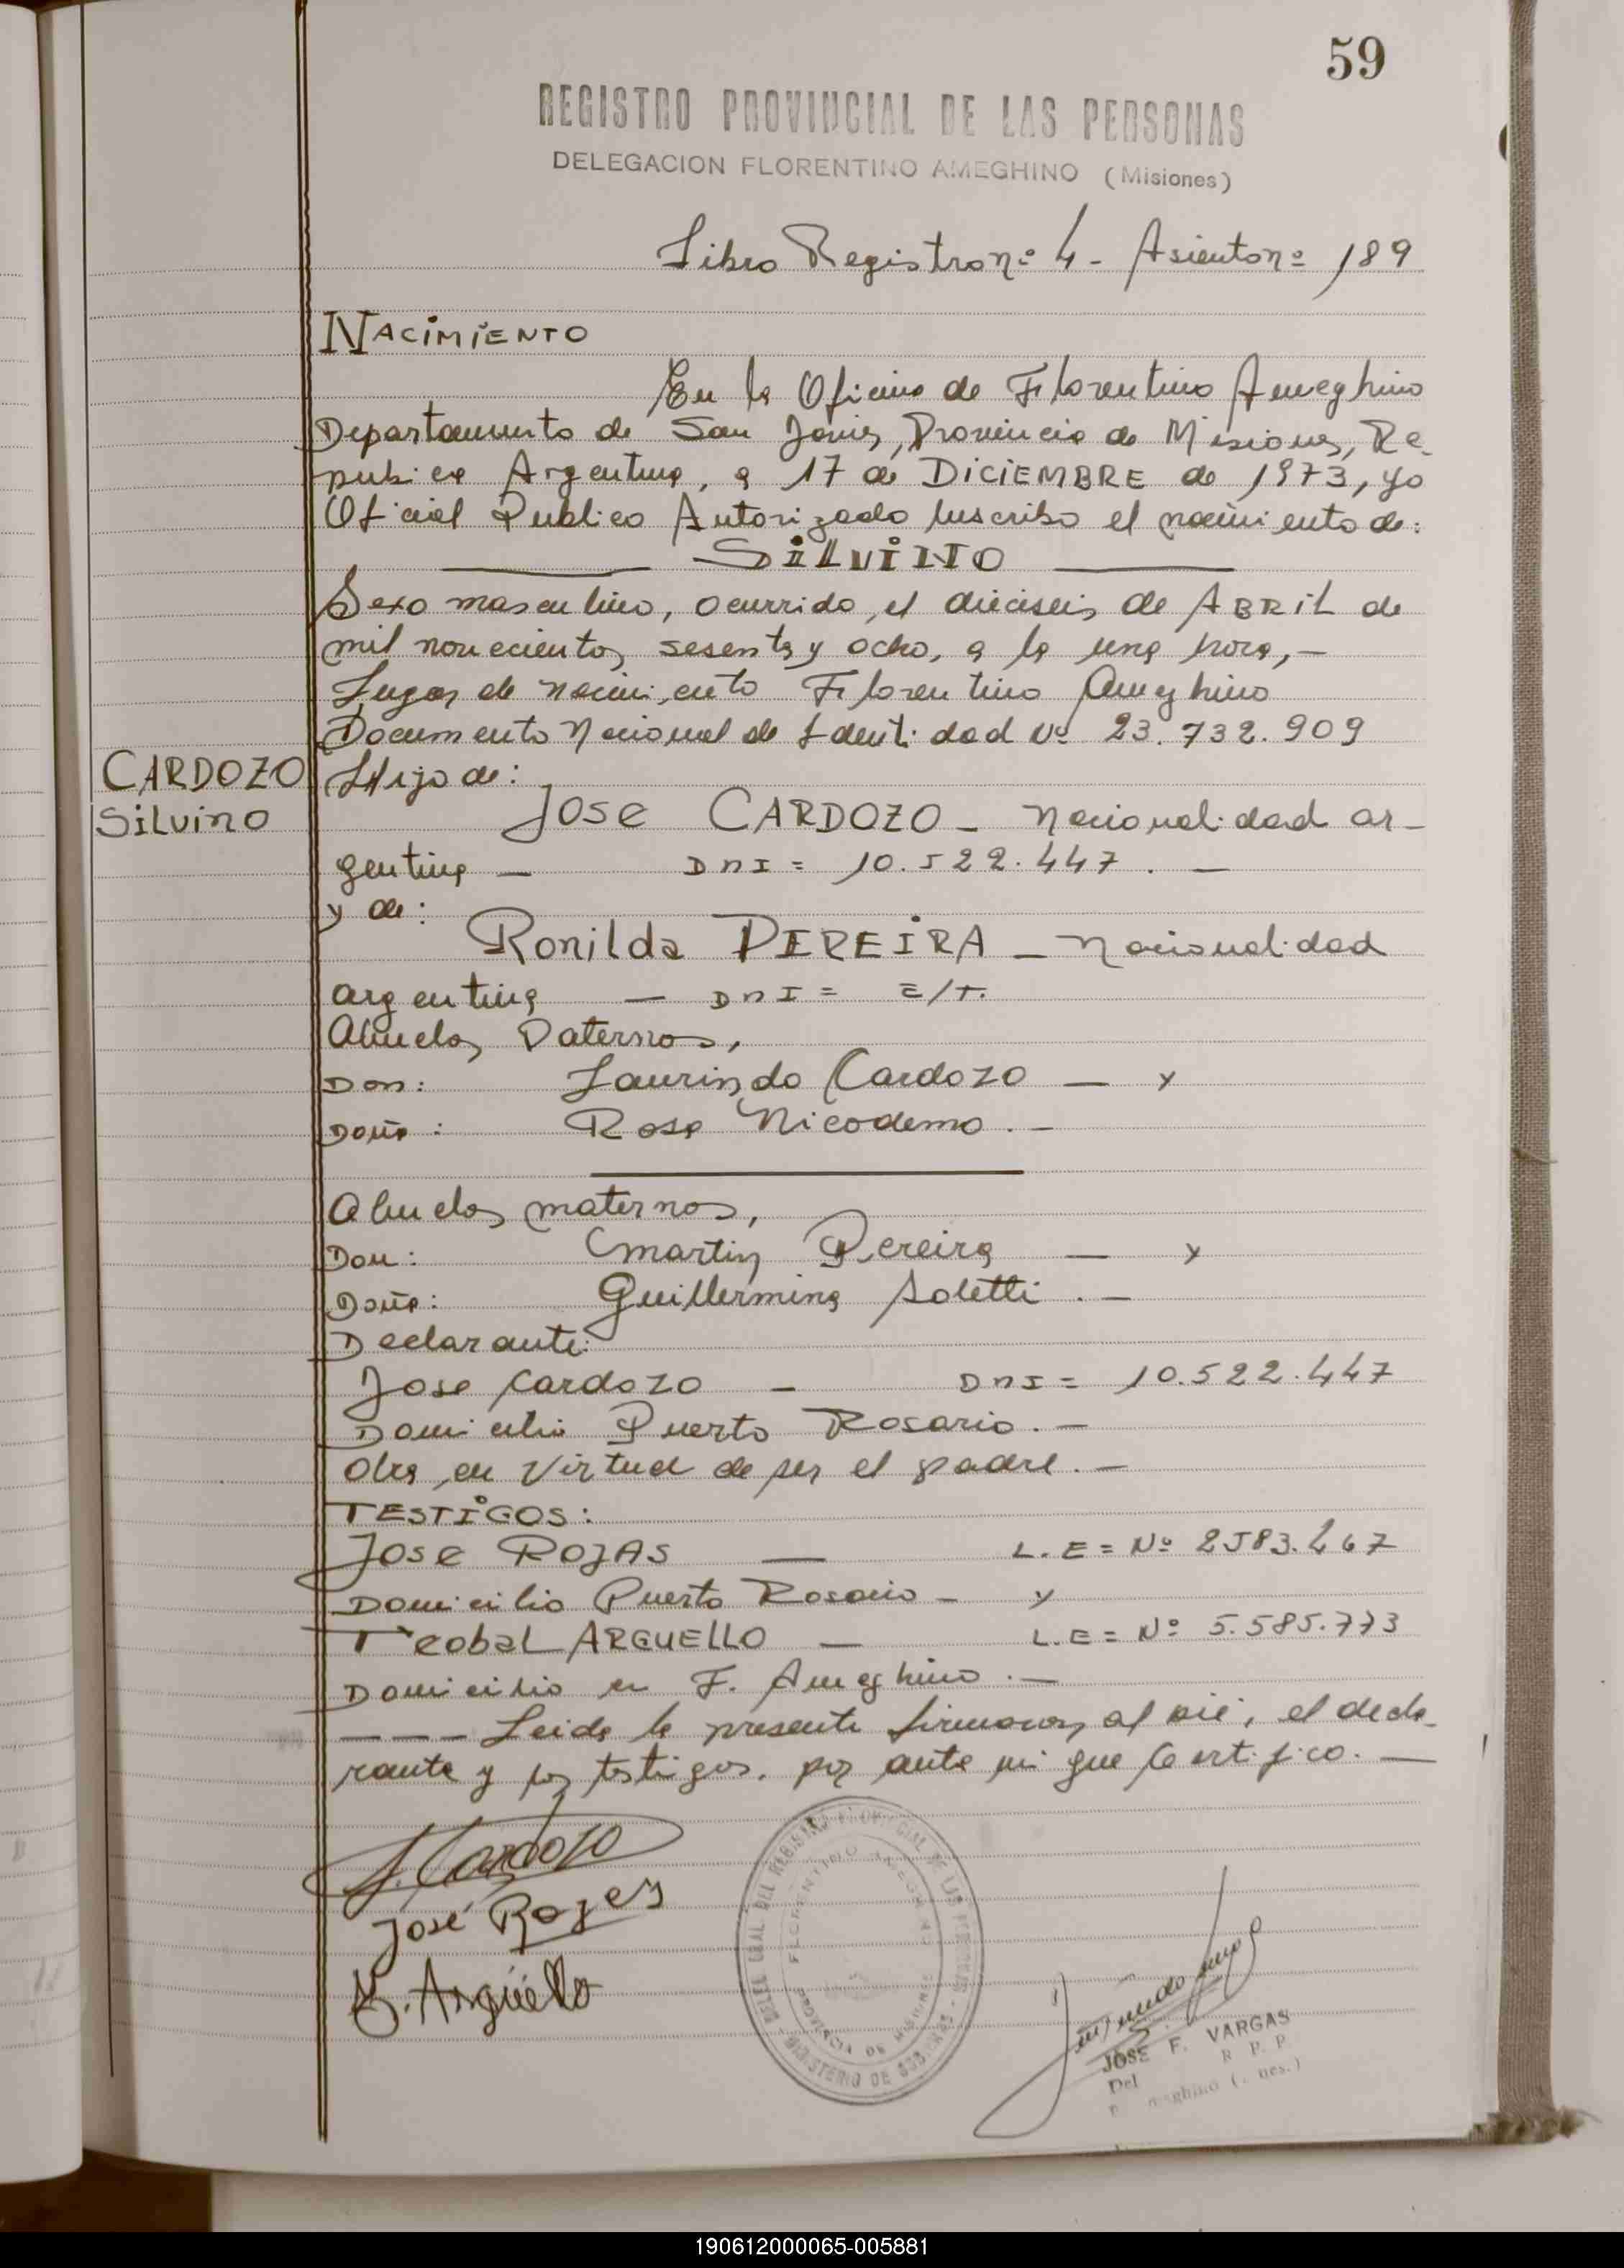 59
REGISTRO PROVINCIAL DE LAS PERSONAS
DELEGACION FLORENTINO AMEGHINO (Misiones)
Libro Registro nº 4 - Asiento nº 189
NACIMIENTO
En la Oficina de Florentino Ameghino
Departamento de San Javier, Provincia de Misiones, Re-
publica Argentina, a 17 de DICIEMBRE de 1973, yo
Oficial Publico Autorizado Inscribo el nacimiento de:
SILVINO
Sexo masculino, ocurrido, el dieciseis de ABRIL de
mil novecientos sesenta y ocho, a la una hora, -
Lugar de nacimiento Florentino Ameghino
Documento Nacional de Identidad Nº 23.732.909
CARDOZO
Silvino
Hijo de:
JOSE CARDOZO - Nacionalidad ar-
gentina - DNI = 10.522.447. -
y de:
Ronilda PEREIRA - Nacionalidad
argentina - DNI = E/T.
Abuelos Paternos,
Don: Laurindo Cardozo - y
Doña: Rosa Nicodemo. -
Abuelos maternos,
Don: Martin Pereira - y
Doña: Guillermina Soletti. -
Declarante:
Jose Cardozo - DNI = 10.522.447
Domicilio Puerto Rosario. -
Obra en virtud de ser el padre. -
TESTIGOS:
JOSE ROJAS - L.E = Nº 2583.267
Domicilio Puerto Rosario - y
Teobal ARGUELLO - L.E = Nº 5.585.773
Domicilio en F. Ameghino. -
---- Leida la presente firmaron al pié, el decla-
rante y los testigos, por ante mi que Certifico. -
J. Cardozo
José Rojes
Argüello
DEL REGISTRO PROVINCIAL DE LAS PERSONAS
FLORENTINO AMEGHINO
PROVINCIA DE MISIONES
MINISTERIO DE
JOSE F. VARGAS
Del R P. P.
190612000065-005881